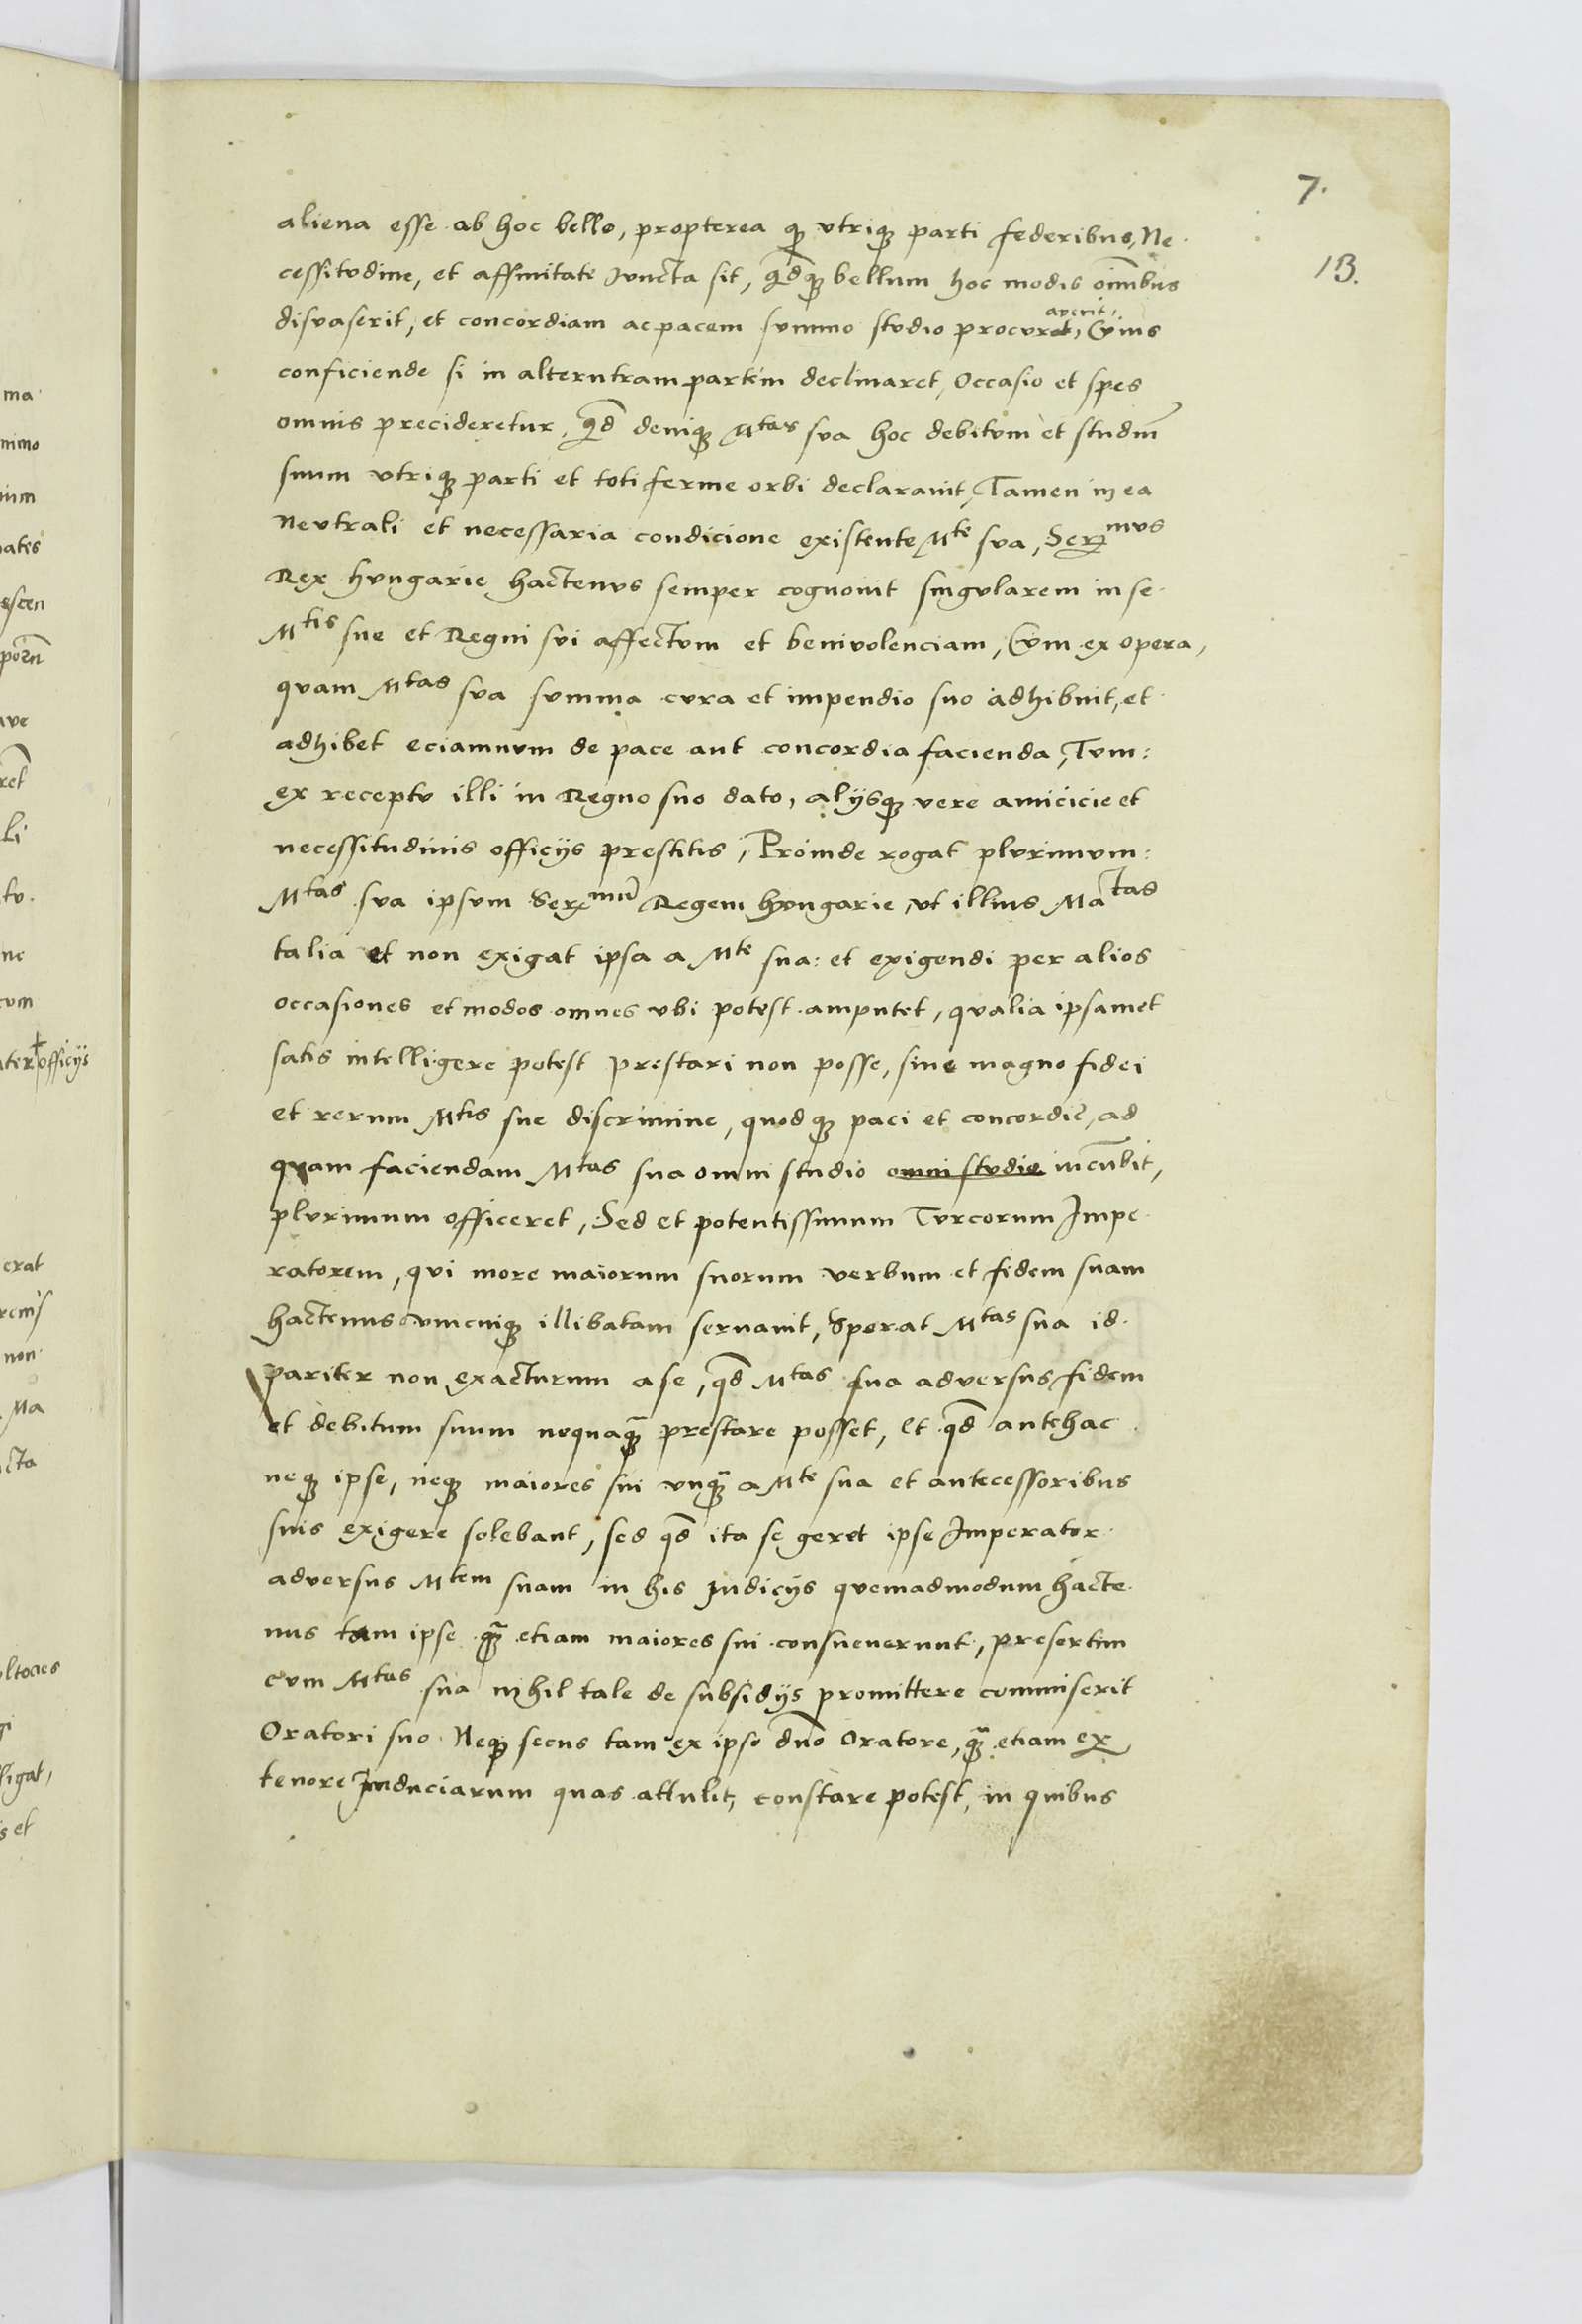 7.
13.
aliena esse ab hoc bello, propterea qp vtrique parti federibus, Ne-
cessitudine, et affinitate Iuncta sit, qdque bellum hoc modis oimnbus
disuaserit, et concordiam ac pacem summo studio procuret, Cuius
averit,
conficiende si in alterutram partem declinaret, Occasio et spes
omnis precideretur, qd denique Mtas sua hoc debitum et studiu
suum vtrique parti et toti ferme orbi declarauit, Tamen in ea
Neutrali et necessaria condicione existente Mte sua, Sermus
Rex hungarie hactenus semper cognouit singularem in se
Mtis sue et Regni sui affectum et beniuolenciam, Cum ex opera,
quam Mtas sua summa cura et impendio suo adhibuit, et
adhibet eciamnum de pace aut concordia facienda, Tum:
ex receptu illi in Regno suo dato, alijsque vere amicicie et
necessitudinis officijs prestitis, Proinde rogat plurimum:
Mtas sua ipsum Sermu Regem hungarie, vt illius Matas
talia et non exigat ipsa a Mte sua: et exigendi per alios
occasiones et modos omnes vbi potest amputet, qualia ipsamet
satis intelligere potest prestari non posse, sine magno fidei
et rerum Mtis sue discrimine, quodque paci et concordie, ad
quam faciendam Mtas sua omni studio omni studio incubit,
plurimum officeret, Sed et potentissimum Turcorum Impe-
ratorem, qui more maiorum suorum verbum et fidem suam
hactenus vnicuique illibatam seruauit, Sperat Mtas sua id
pariter non exacturum a se, qd Mtas sua adversus fidem
et debitum suum nequaqua prestare posset, et qd antehac
neque ipse, neque maiores sui vnqua a Mte sua et antecessoribus
suis exigere solebant, sed qd ita se geret ipse Imperator
adversus Mtem suam in his Indicijs quemadmodum hacte-
nus tam ipse qua etiam maiores sui consueuerunt, presertim
cum Mtas sua nihil tale de subsidijs promittere commiserit
Oratori suo Neque secus tam ex ipso dno Oratore, qua etiam ex
tenore Induciarum quas attulit, constare potest, in quibus